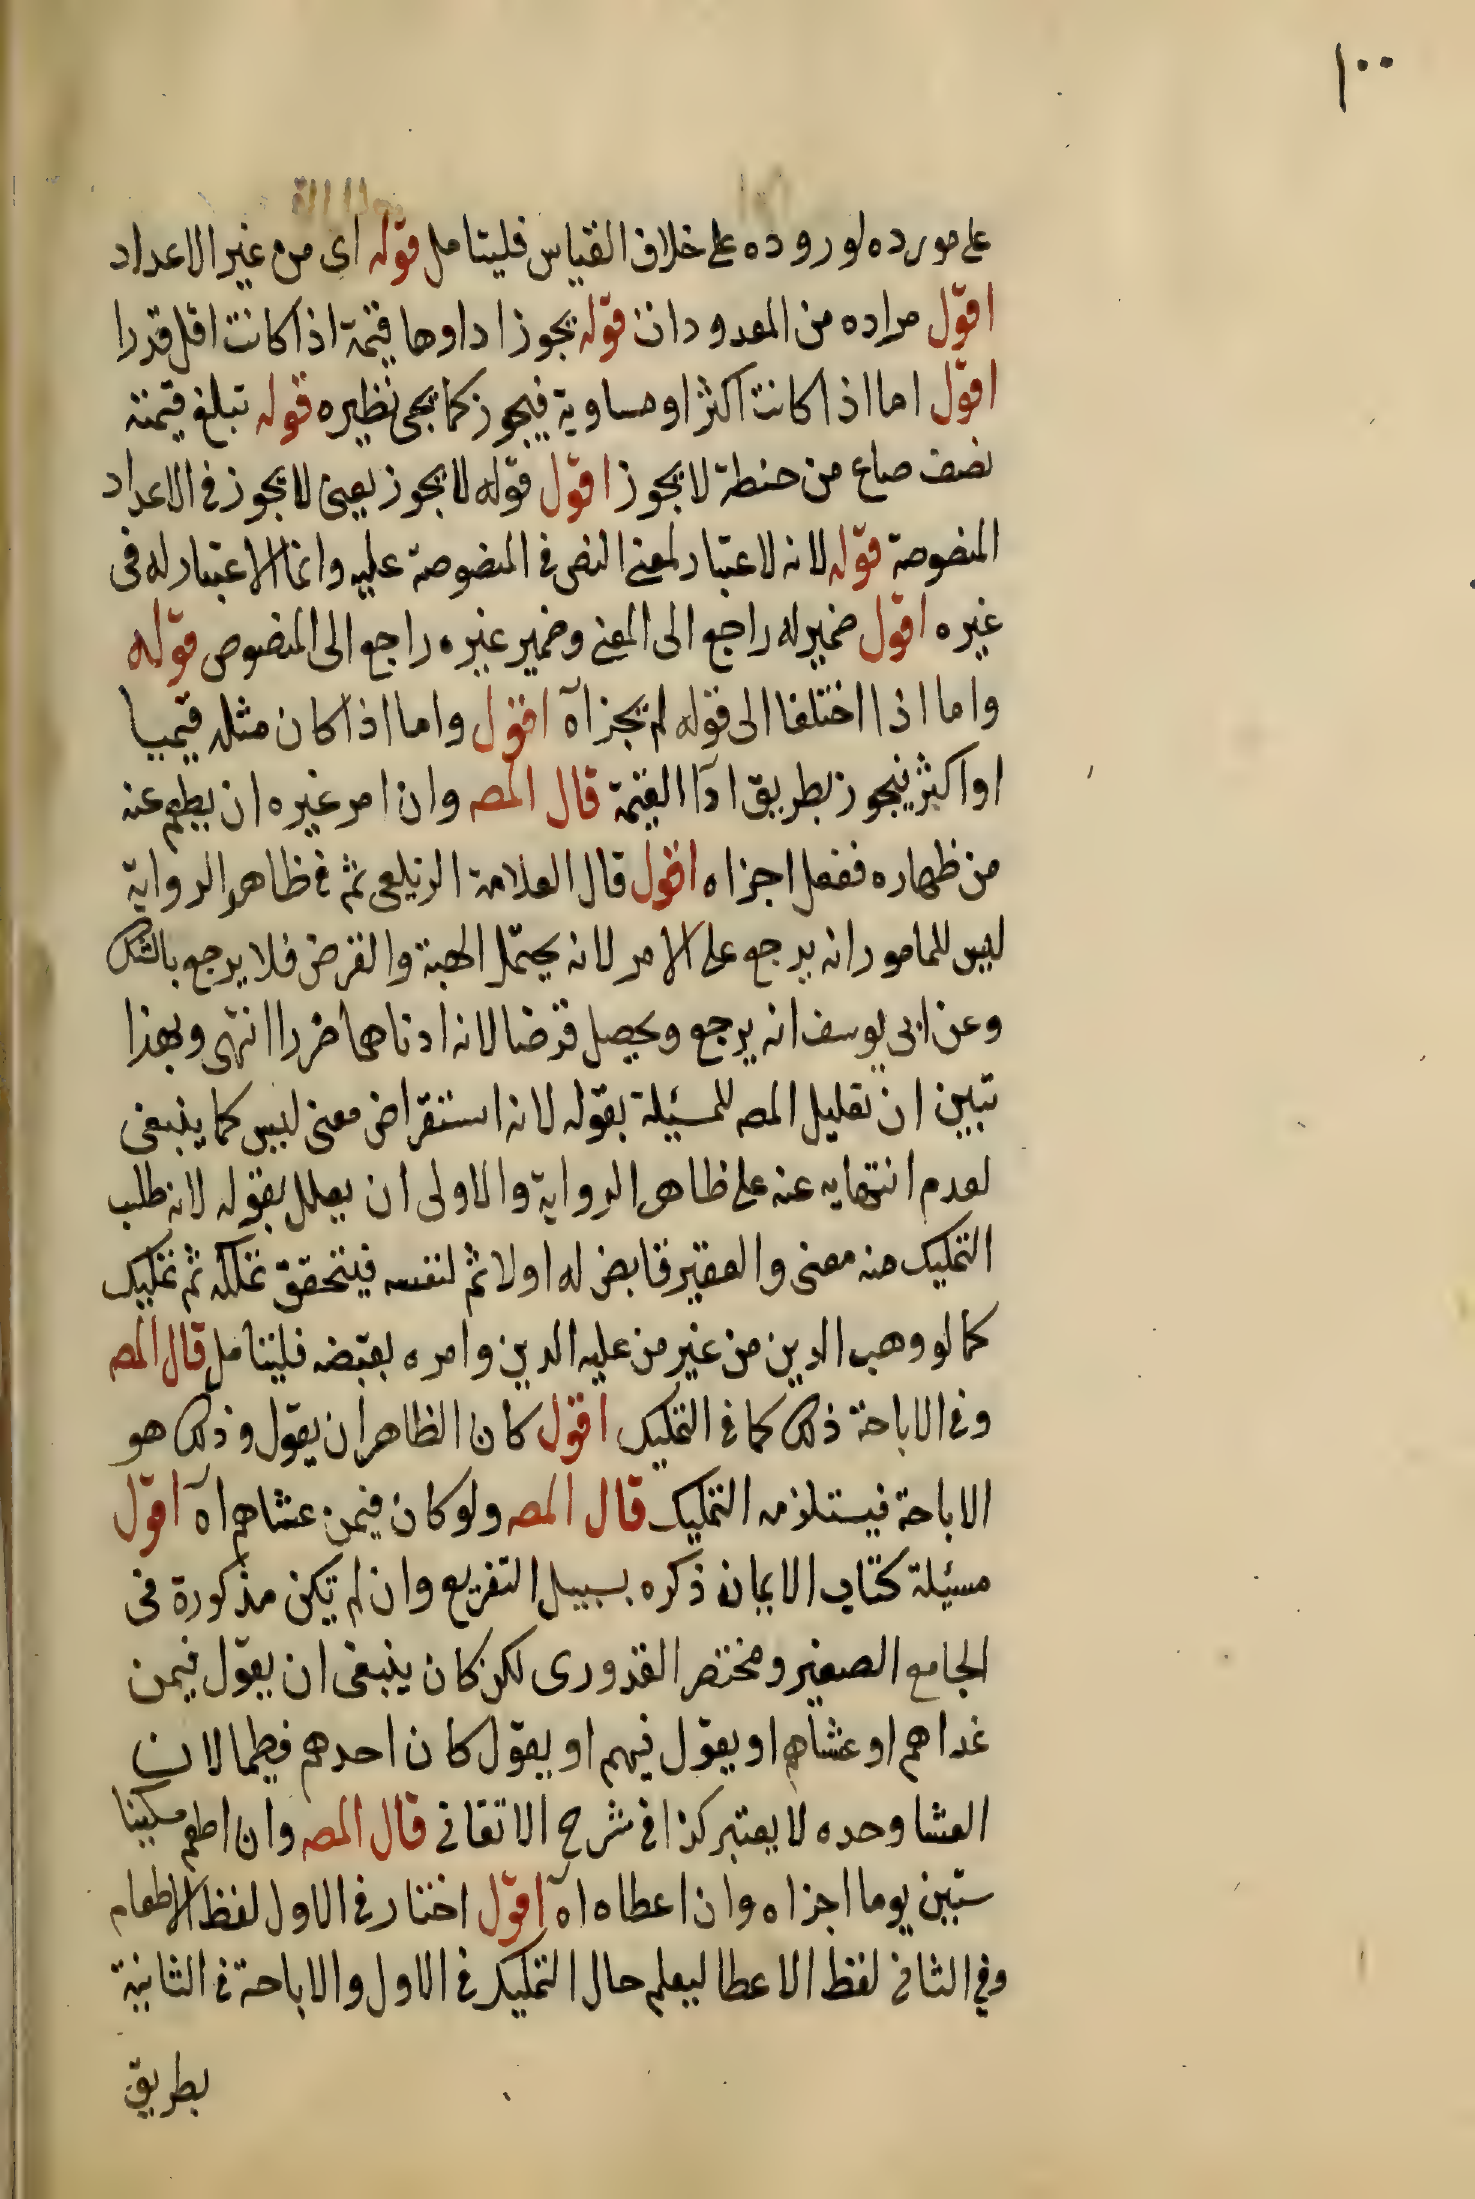 ١٠٠
على مورده لوروده على خلاف القياس فليتامل قوله اى من غير الاعداد
اقول مراده من المعدودات قوله يجوز اداوها قيمة اذا كانت اقل قدرا
اقول اما اذا كانت اكثر او مساوية فيجوز كما يجى نظيره قوله تبلغ قيمته
نصف صاع من حنطة لا يجوز اقول قوله لا يجوز يعنى لا يجوز فى الاعداد
المنصوصة قوله لانه لا عتبار لمعنى النص فى المنصوصة عليه وانما الاعتبار له فى
غيره اقول ضمير له راجع الى المعنى وضمير غيره راجع الى المنصوص قوله
واما اذا اختلفا الى قوله لم يجز اه اقول واما اذا كان مثله قيميا
او اكثر فيجوز بطريق ادآ القيمة قال المصـ وان امر غيره ان يطعم عنه
من ظهاره ففعل اجزاه اقول قال العلامة الزيلعى ثم فى ظاهر الرواية
ليس للمامور انه يرجع على الامر لانه يحتمل الهبة والقرض فلا يرجع بالشك
وعن ابى يوسف انه يرجع ويحصل قرضا لانه ادناهما ضررا انتهى وبهذا
تبين ان تعليل المصـ للمسئيلة بقوله لانه استقراض معنى ليس كما ينبغى
لعدم انتهايه عنه على ظاهر الرواية والاولى ان يعلل بقوله لانه طلب
التمليك منه معنى والفقير قابض له اولا ثم لنفسه فيتحقق تملكه ثم تمليك
كما لو وهب الدين من غير من عليه الدين وامره بقبضه فليتامل قال المصـ
وفى الاباحة ذلك كما فى التمليك اقول كان الظاهر ان يقول وذلك هو
الاباحة فيستلزمه التمليك قال المصـ ولو كان فيمن عشاهم اه اقول
مسئيلة كتاب الايمان ذكره بسبيل التفريع وان لم تكن مذكورة فى
الجامع الصغير ومختصر القدورى لكن كان ينبغى ان يقول فيمن
غداهم او عشاهم او يقول فيهم او يقول كان احدهم فطيما لان
العشا وحده لا يعتبر كذا فى شرح الاتقانى قال المصـ وان اطعم مسكينا
ستين يوما اجزاه وان اعطاه اه اقول اختار فى الاول لفظ الاطعام
وفي الثانى لفظ الاعطا ليعلم حال التمليك فى الاول والاباحة فى الثانية
بطريق